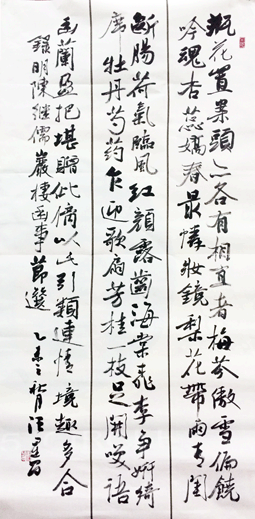 瓶花置案頭亦各有相宜者梅芬傲雪偏饒
吟魂杏蕊嬌春最憐妝鏡梨花帶雨青閨
斷腸荷氣臨風紅顏露齒海棠桃李爭妍綺
席牡丹芍藥乍迎歌扇芳桂一枝足開笑語
幽蘭盈把堪贈仳俪以此引類連情境趣多合
錄明陳繼儒巖棲幽事節選 乙未之秋月